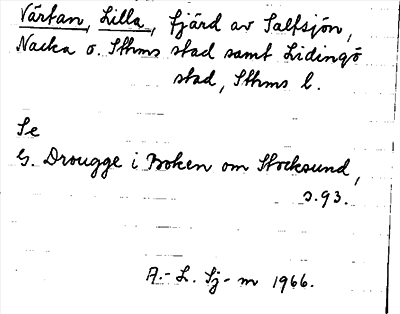 Värtan, Lilla, fjärd av Saltsjön,
Nacka o. Sthms stad samt Lidingö
stad, Sthms l.
Se
G. Drougge i Boken om Stocksund,
s. 93.
A.-L. Sj-m 1966.